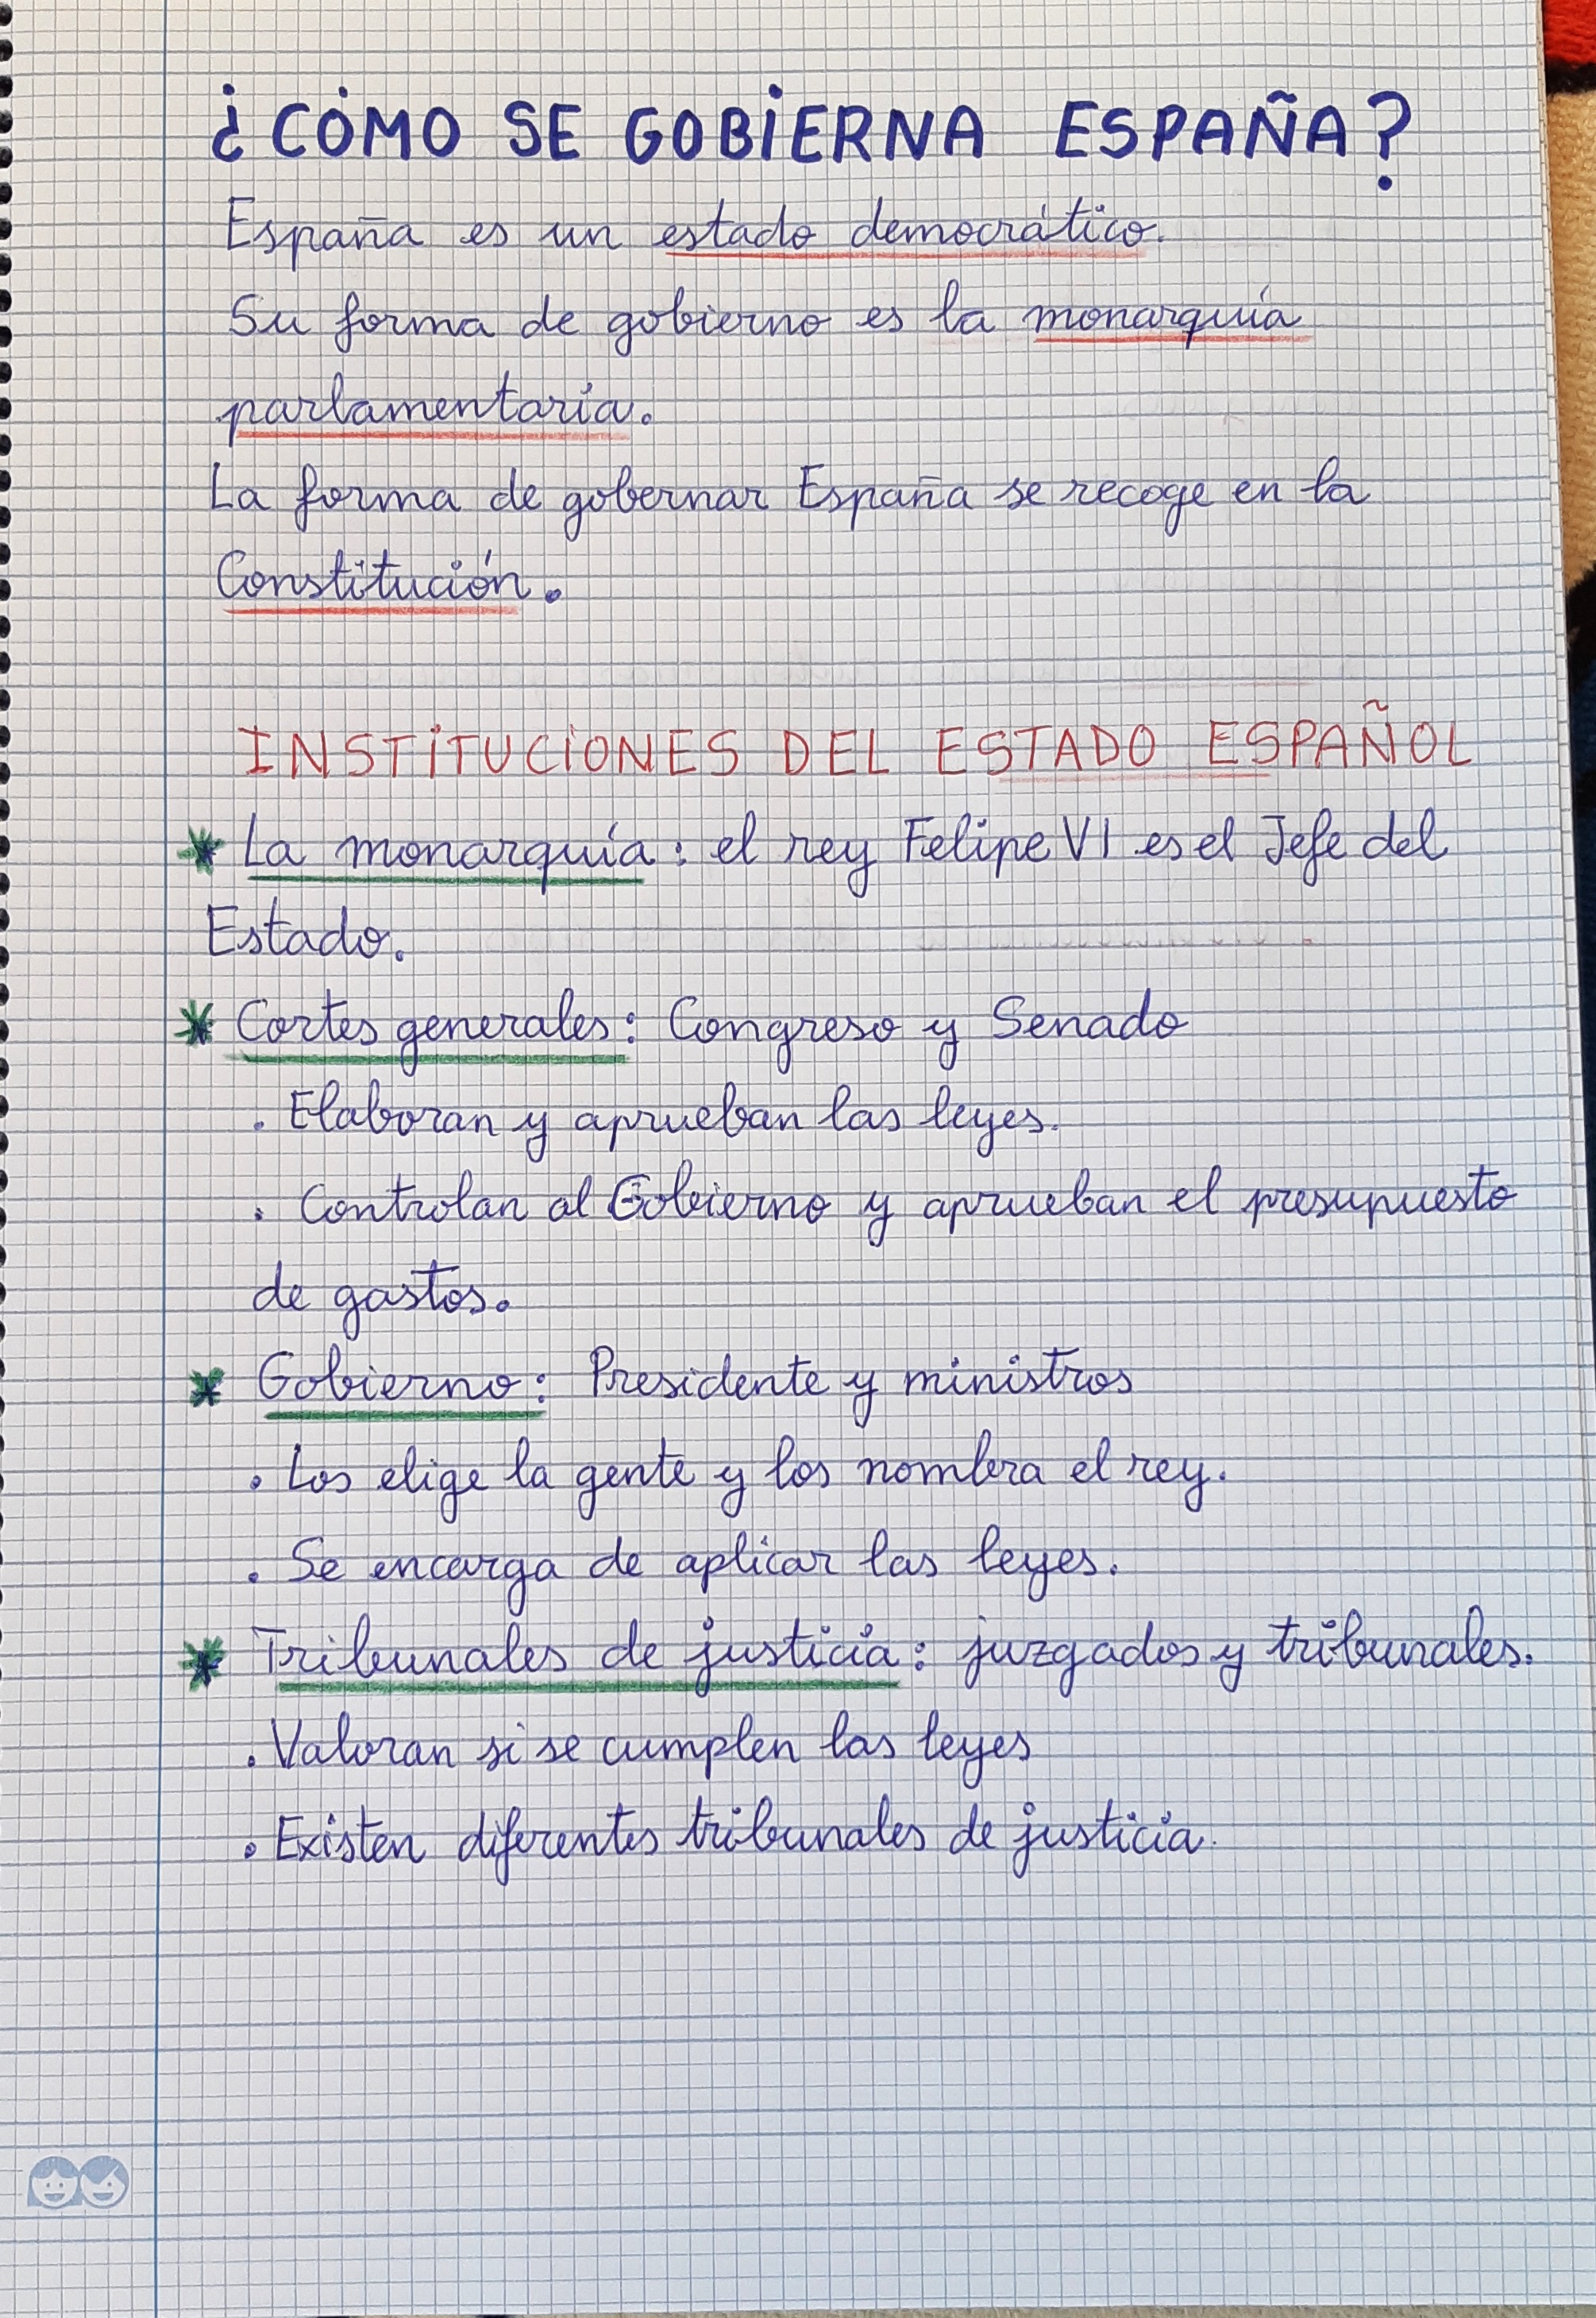 ¿CÓMO SE GOBIERNA ESPAÑA?
España es un estado democrático.
Su forma de gobierno es la monarquía
parlamentaria.
La forma de gobernar España se recoge en la
Constitución.
INSTITUCIONES DEL ESTADO ESPAÑOL
* La monarquía: el rey Felipe VI es el Jefe del
Estado.
* Cortes generales: Congreso y Senado
. Elaboran y aprueban las leyes.
. Controlan al Gobierno y aprueban el presupuesto
de gastos.
* Gobierno: Presidente y ministros
. Los elige la gente y los nombra el rey.
. Se encarga de aplicar las leyes.
* Tribunales de justicia: juzgados y tribunales.
. Valoran si se cumplen las leyes
. Existen diferentes tribunales de justicia.